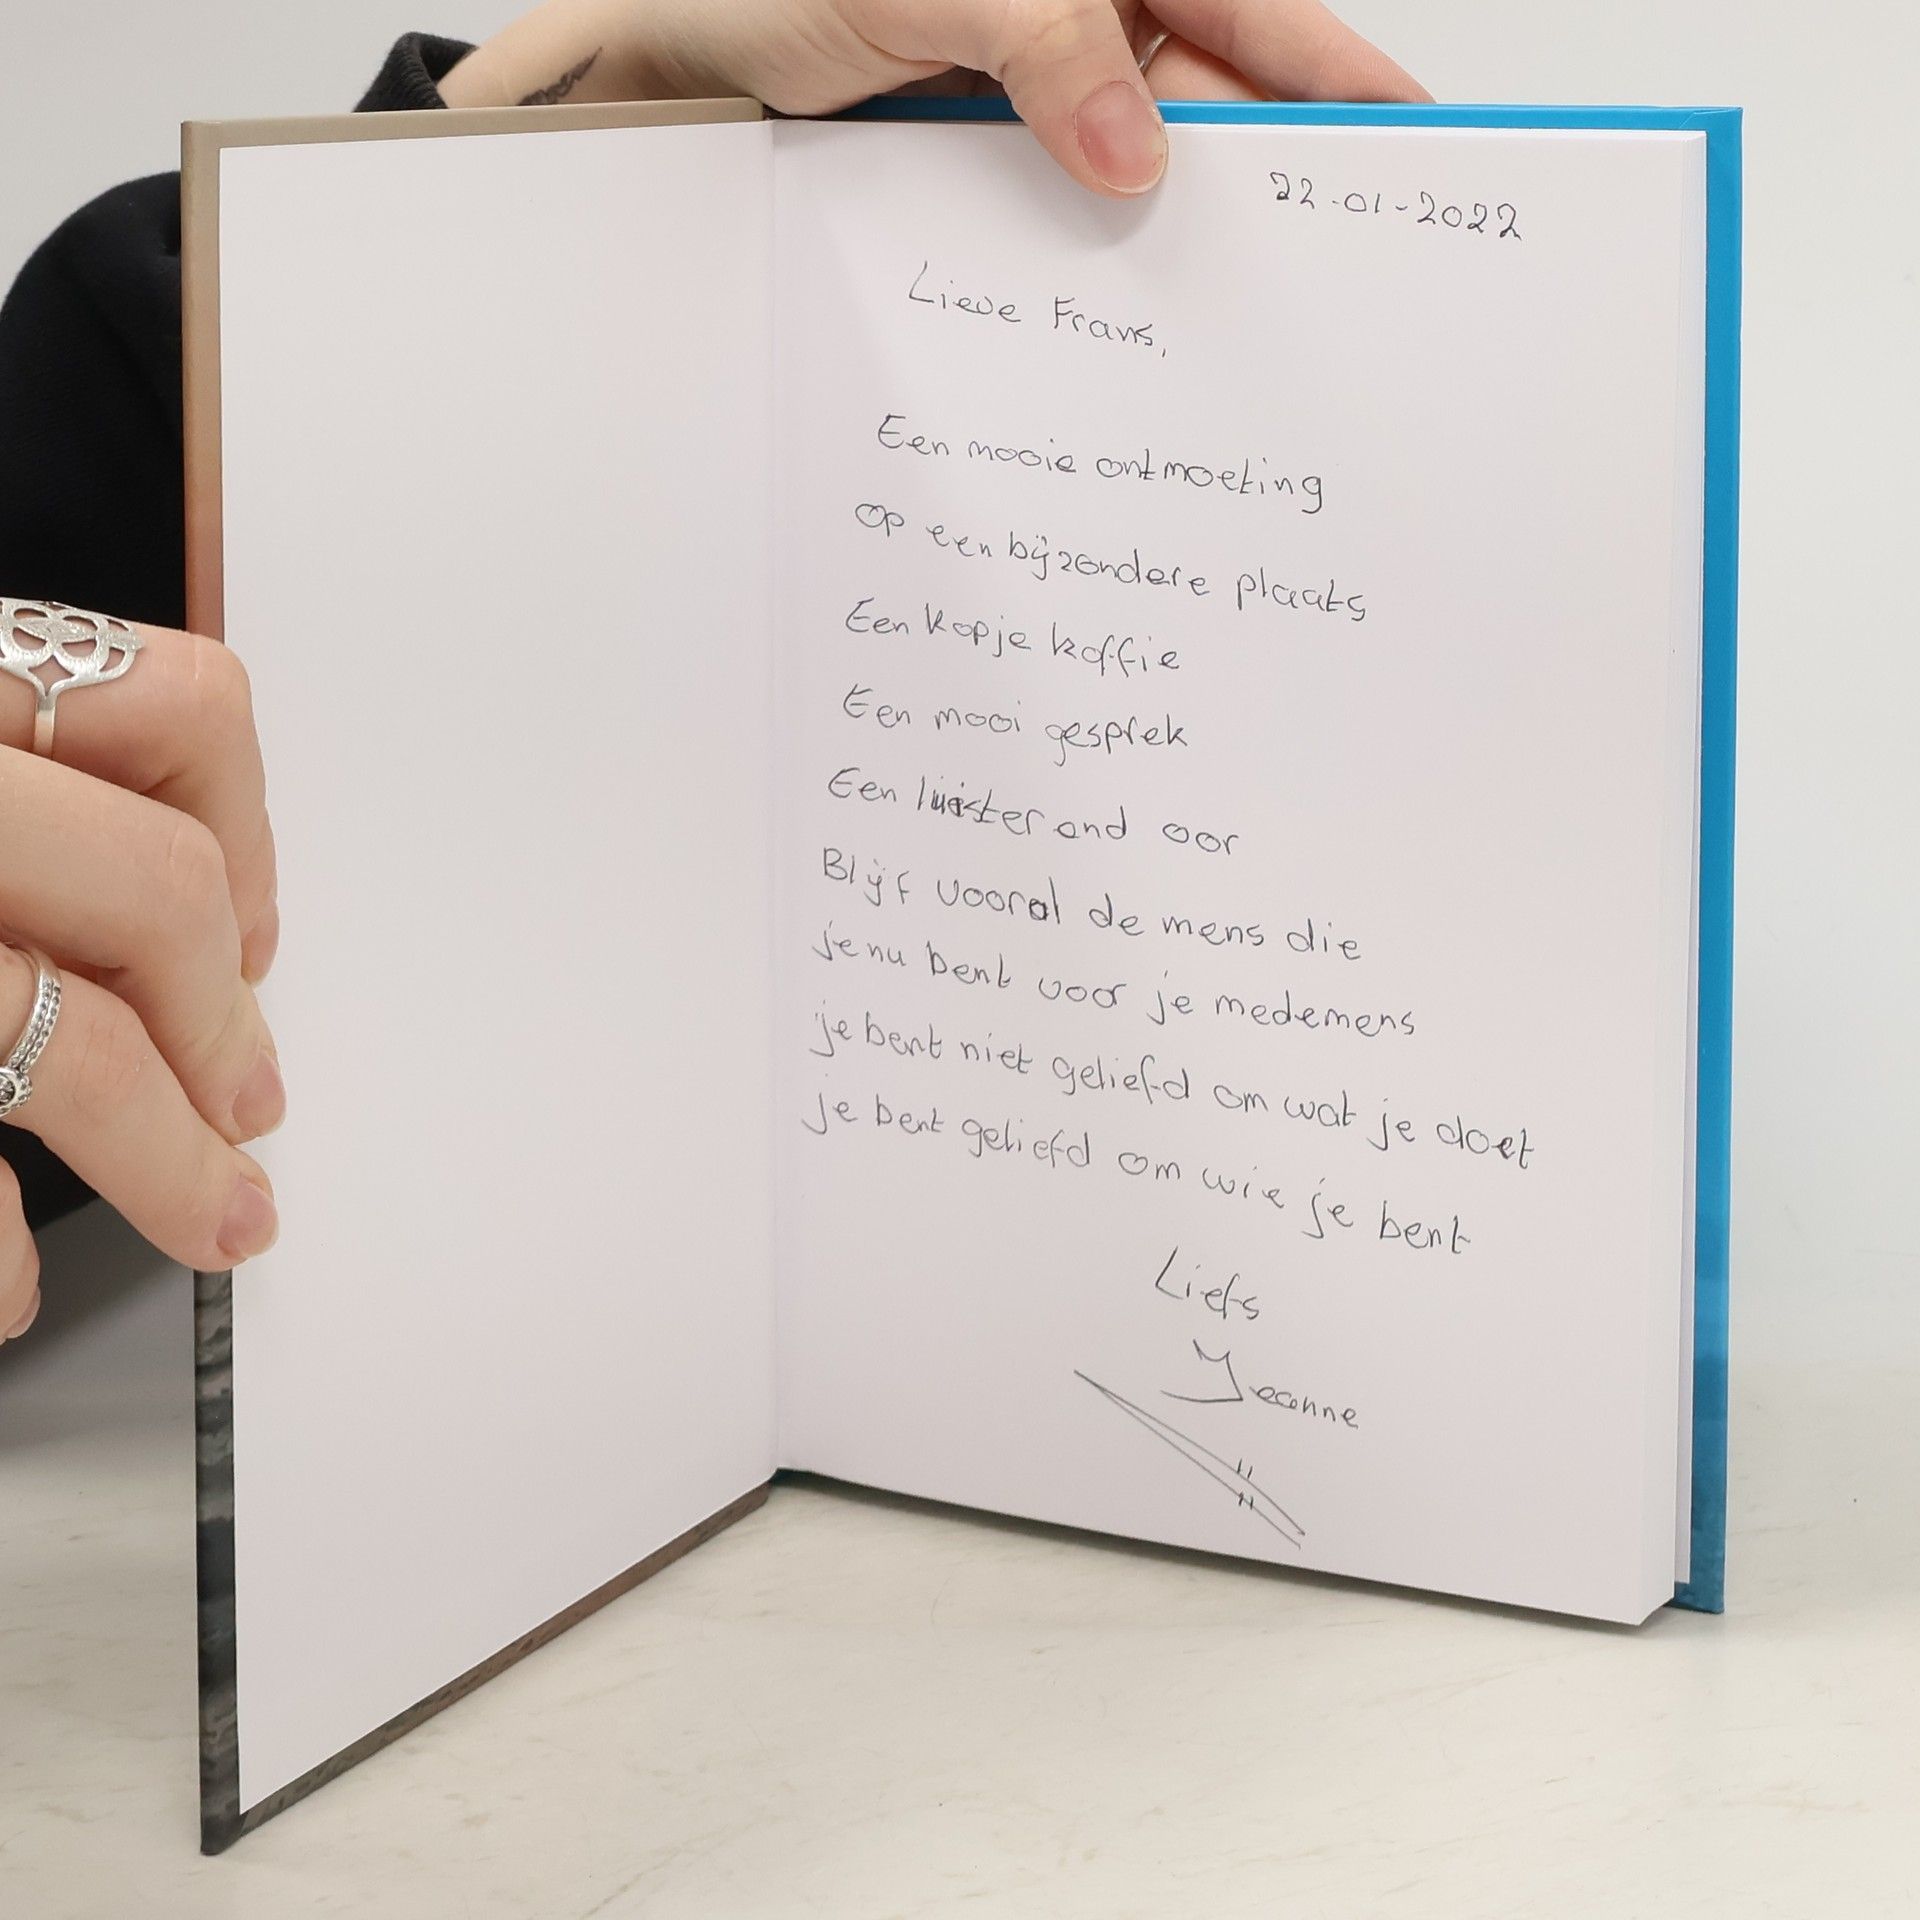 22-01-2022
Lieve Frans,
Een mooie ontmoeting
op een bijzondere plaats
Een kopje koffie
Een mooi gesprek
Een luisterend oor
Blijf vooral de mens die
je nu bent voor je medemens
je bent niet geliefd om wat je doet
je bent geliefd om wie je bent
Liefs
Jeanne